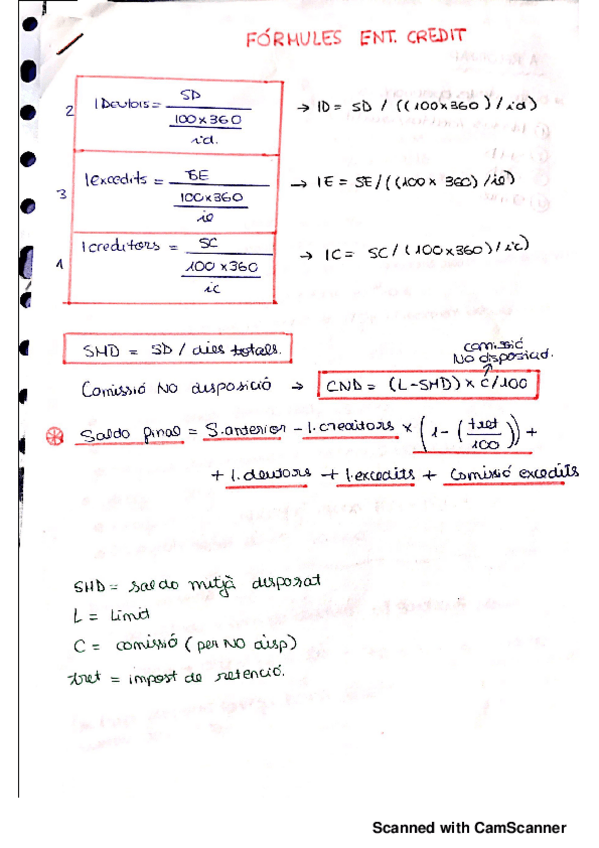 FÓRMULES ENT. CREDIT
2 IDeutors = SD / (100x360 / id.) → ID = SD / ((100x360) / id)
3 IExcedits = SE / (100x360 / ie) → IE = SE / ((100x 360) / ie)
1 Icreditors = SC / (100x360 / ic) → IC = SC / (100x360) / ic)
SMD = SD / dies totals.
comissió
NO disposició → CND = (L-SMD) x C/100
Comissió NO disposició
Saldo final = S.anterior - I.creditors x (1 - (tret/100)) +
+ I.deutors + I.excedits + Comissió excedits
SMD = saldo mitjà disposat
L = Limit
C = comissió (per NO disp)
tret = impost de retenció.
Scanned with CamScanner